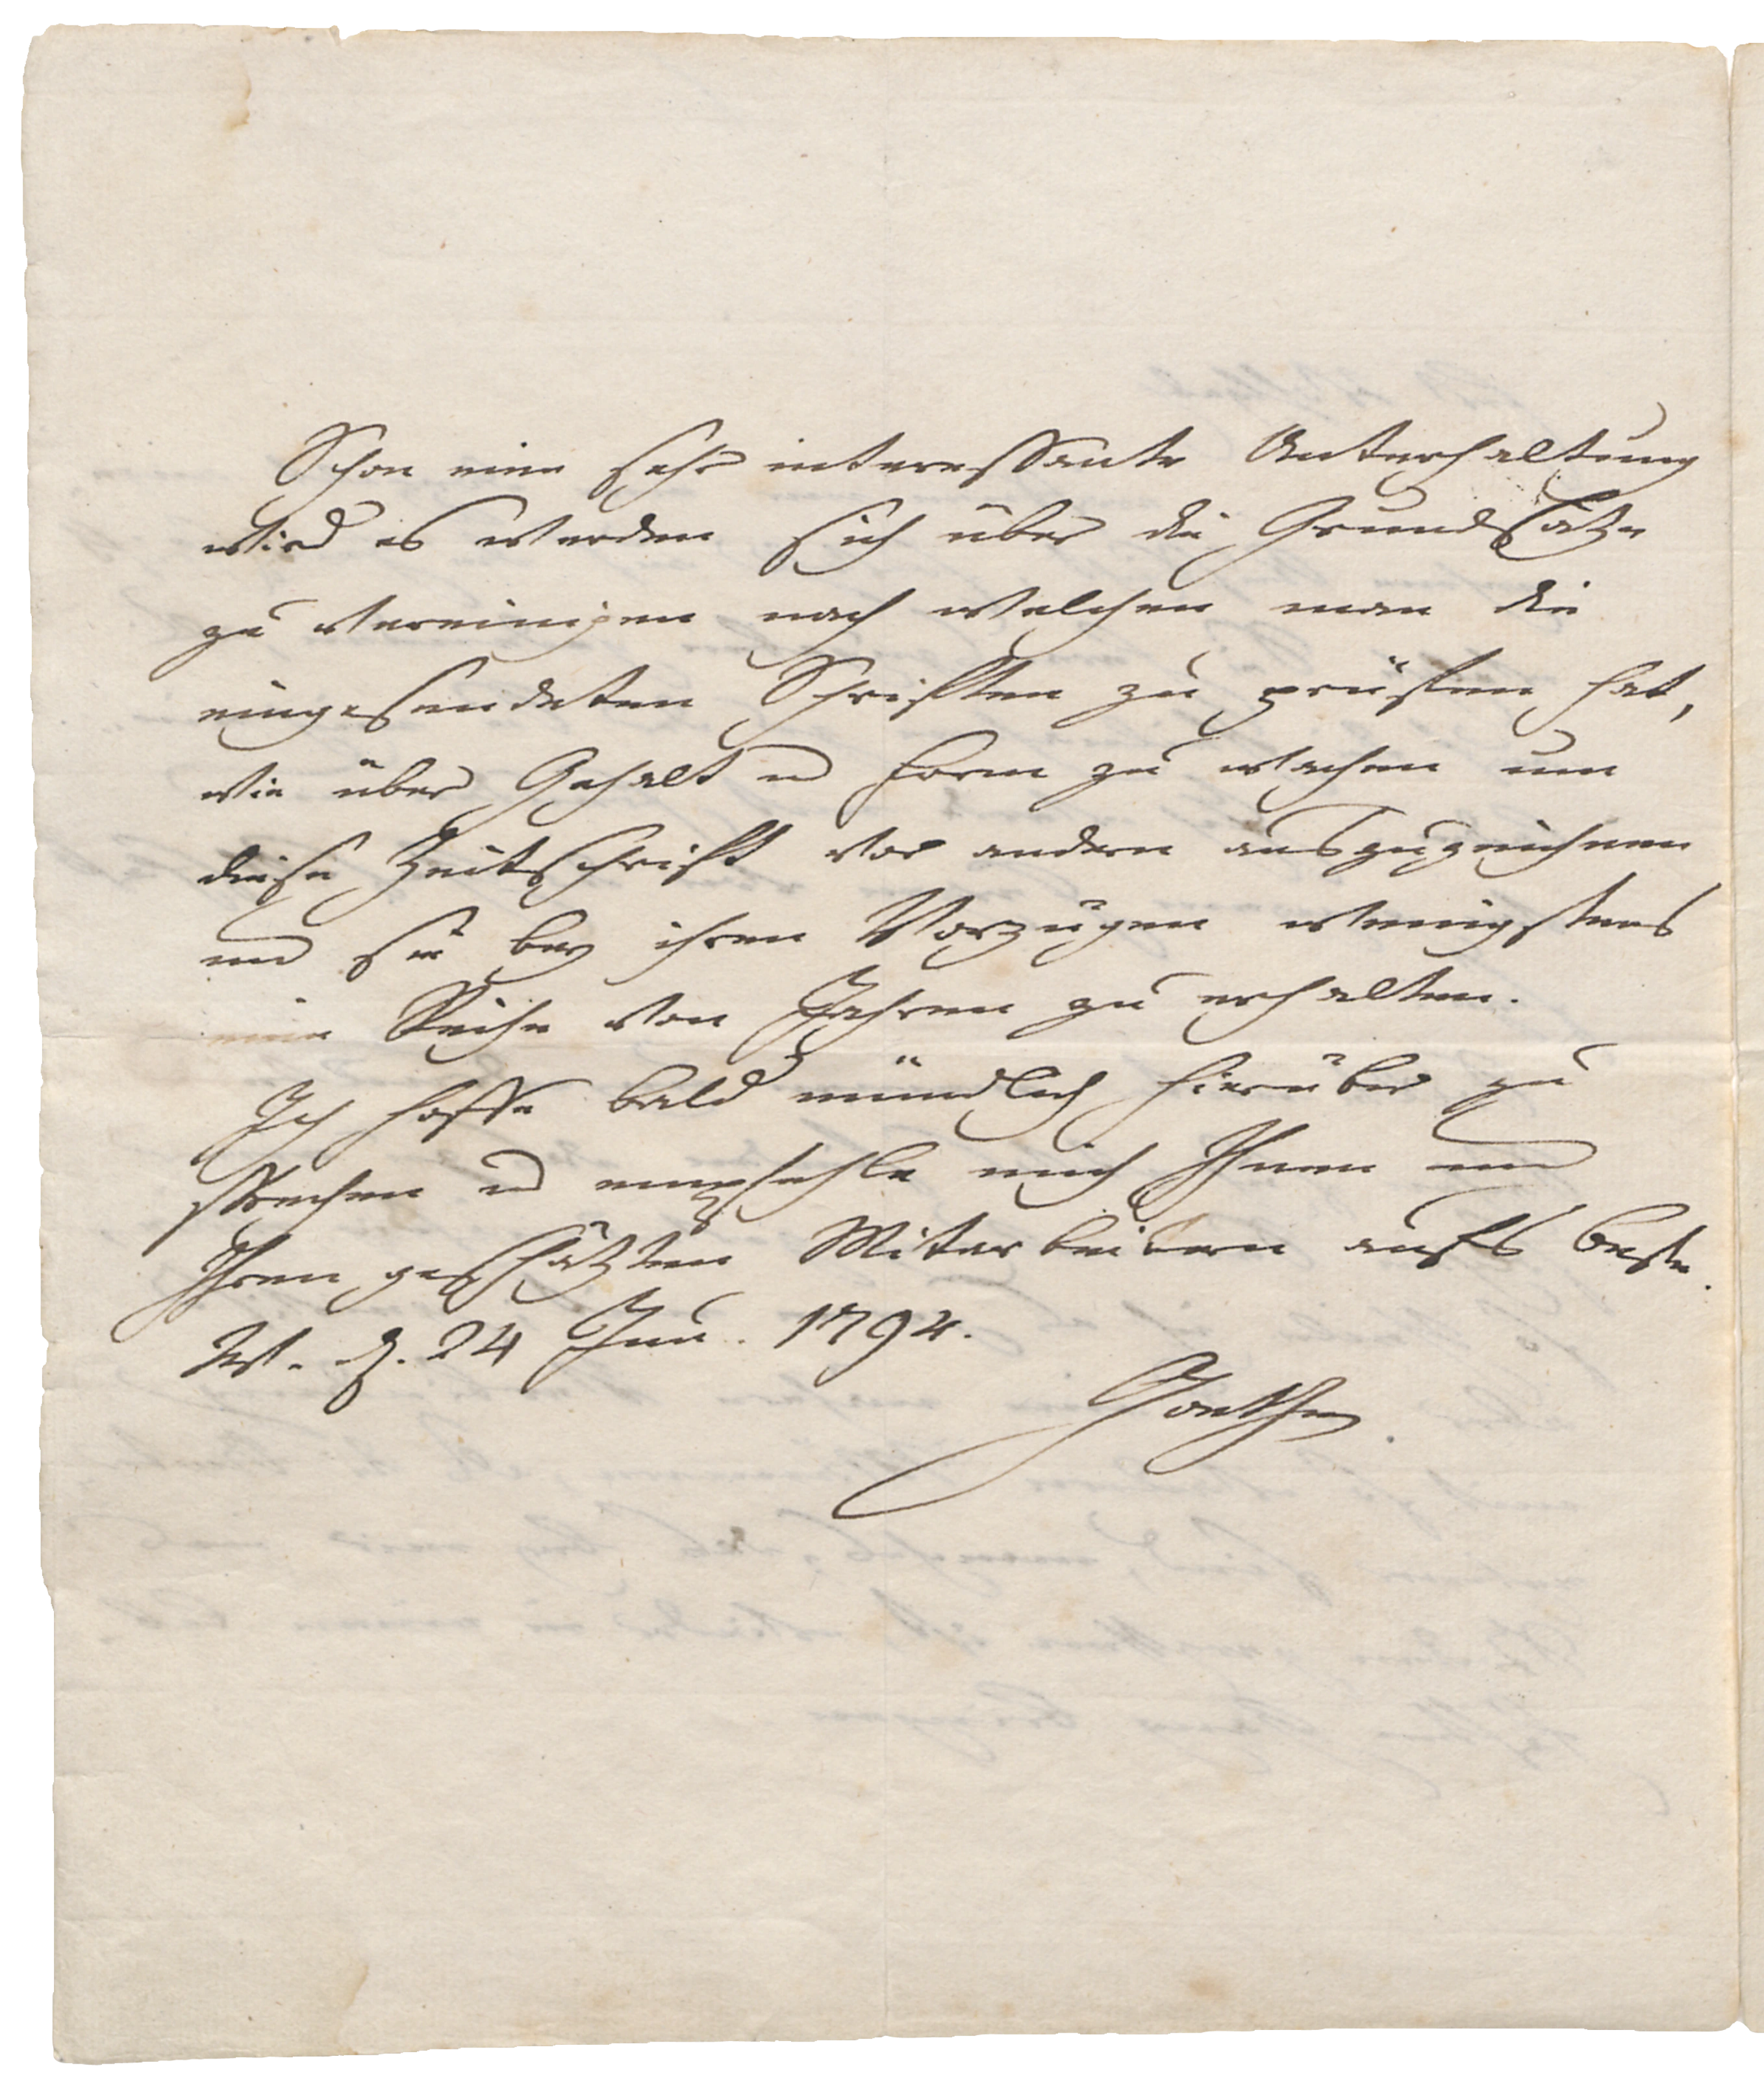 Schon eine sehr interessante Unterhaltung
wird es werden sich über die Grundsätze
zu vereinigen nach welchen man die
eingesendeten Schriften zu prüfen hat,
wie über Gehalt u Form zu wachen um
diese Zeitschrift vor andern auszuzeichnen
und sie bey ihren Vorzügen wenigstens
eine Reihe von Jahren zu erhalten.
Ich hoffe bald mündlich hierüber zu
sprechen u empfehle mich Ihnen und
Ihren geschätzten Mitarbeitern aufs beste.
W. d. 24 Jun. 1794.
Goethe.